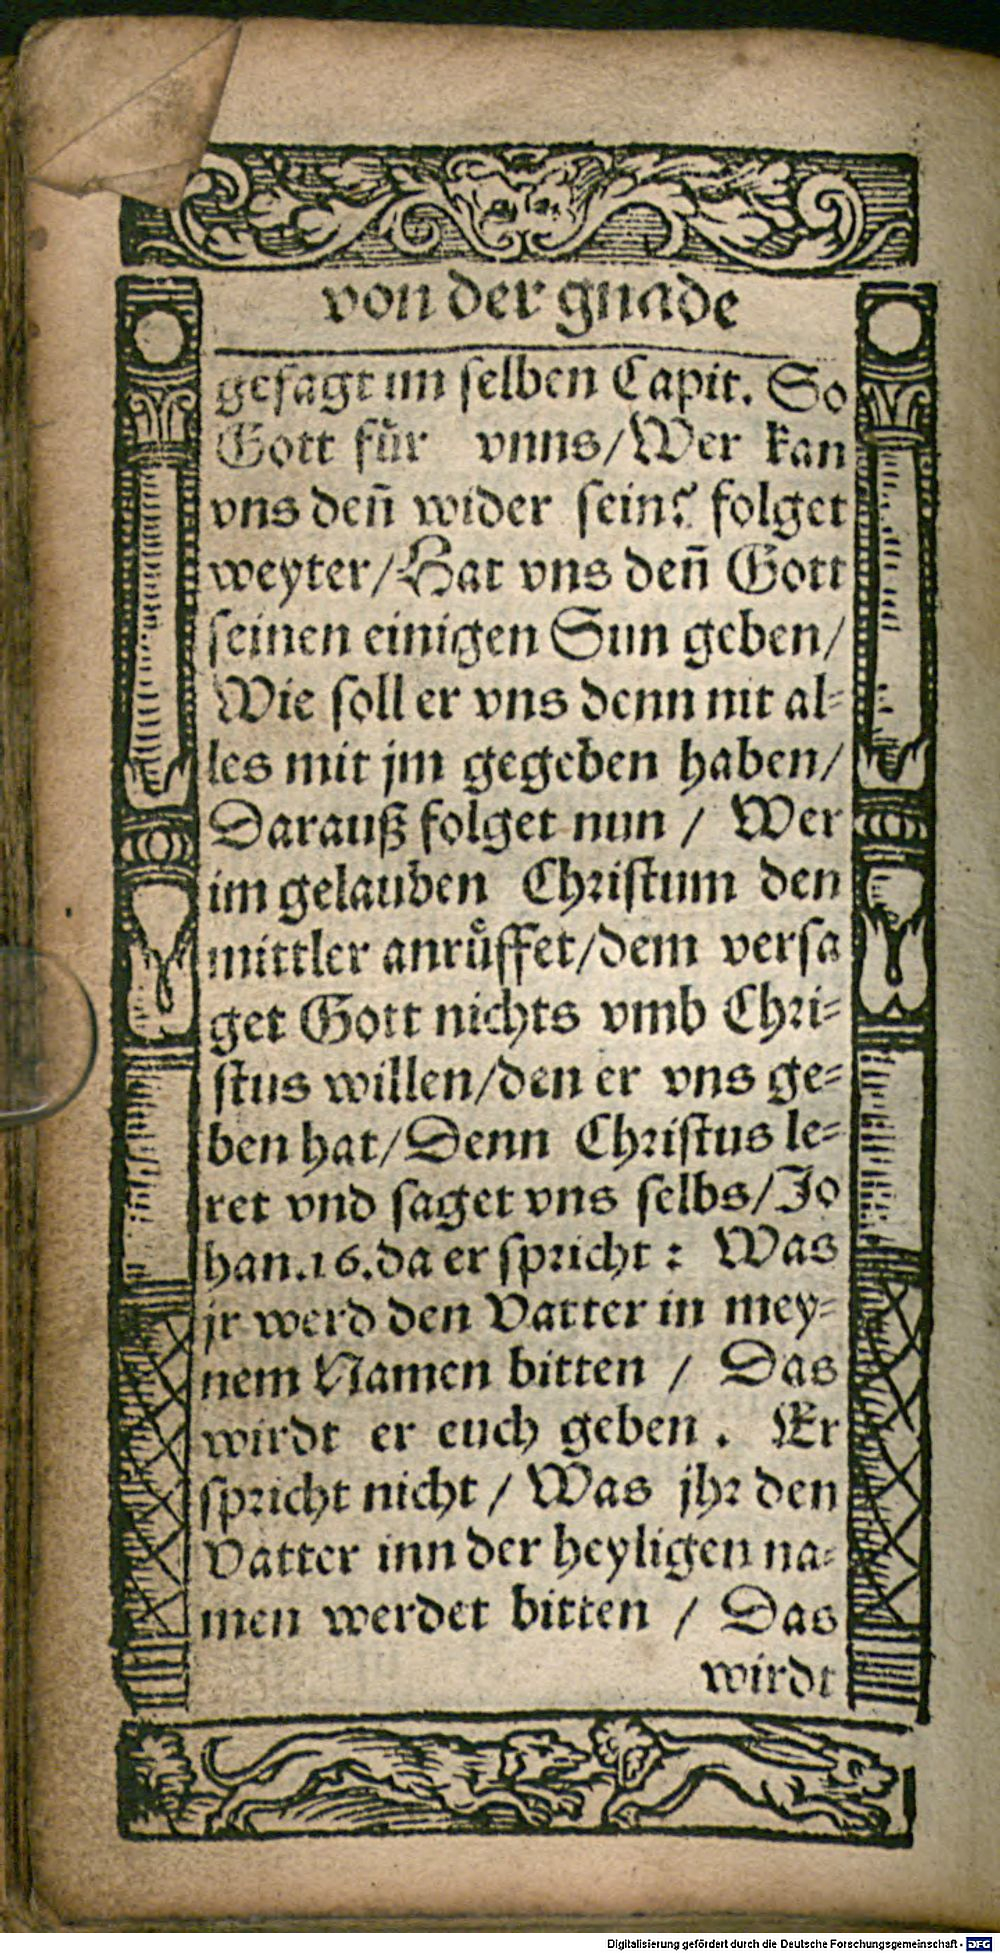 von der gnade
gesagt im selben Capit. So
Gott für vnns/Wer kan
vns deñ wider sein? folget
weyter/Hat vns deñ Gott
seinen einigen Sun geben/
Wie soll er vns denn nit al-
les mit jm gegeben haben/
Darauß folget nun / Wer
im gelauben Christum den
mittler anrůffet/dem versa
get Gott nichts vmb Chri-
stus willen/den er vns ge-
ben hat/Denn Christus le-
ret vnd saget vns selbs/Jo
han.16.da er spricht : Was
jr werd den Vatter in mey-
nem Namen bitten / Das
wirdt er euch geben . Er
spricht nicht / Was jhr den
Vatter inn der heyligen na-
men werdet bitten / Das
wirdt
Digitalisierung gefördert durch die Deutsche Forschungsgemeinschaft - DFG